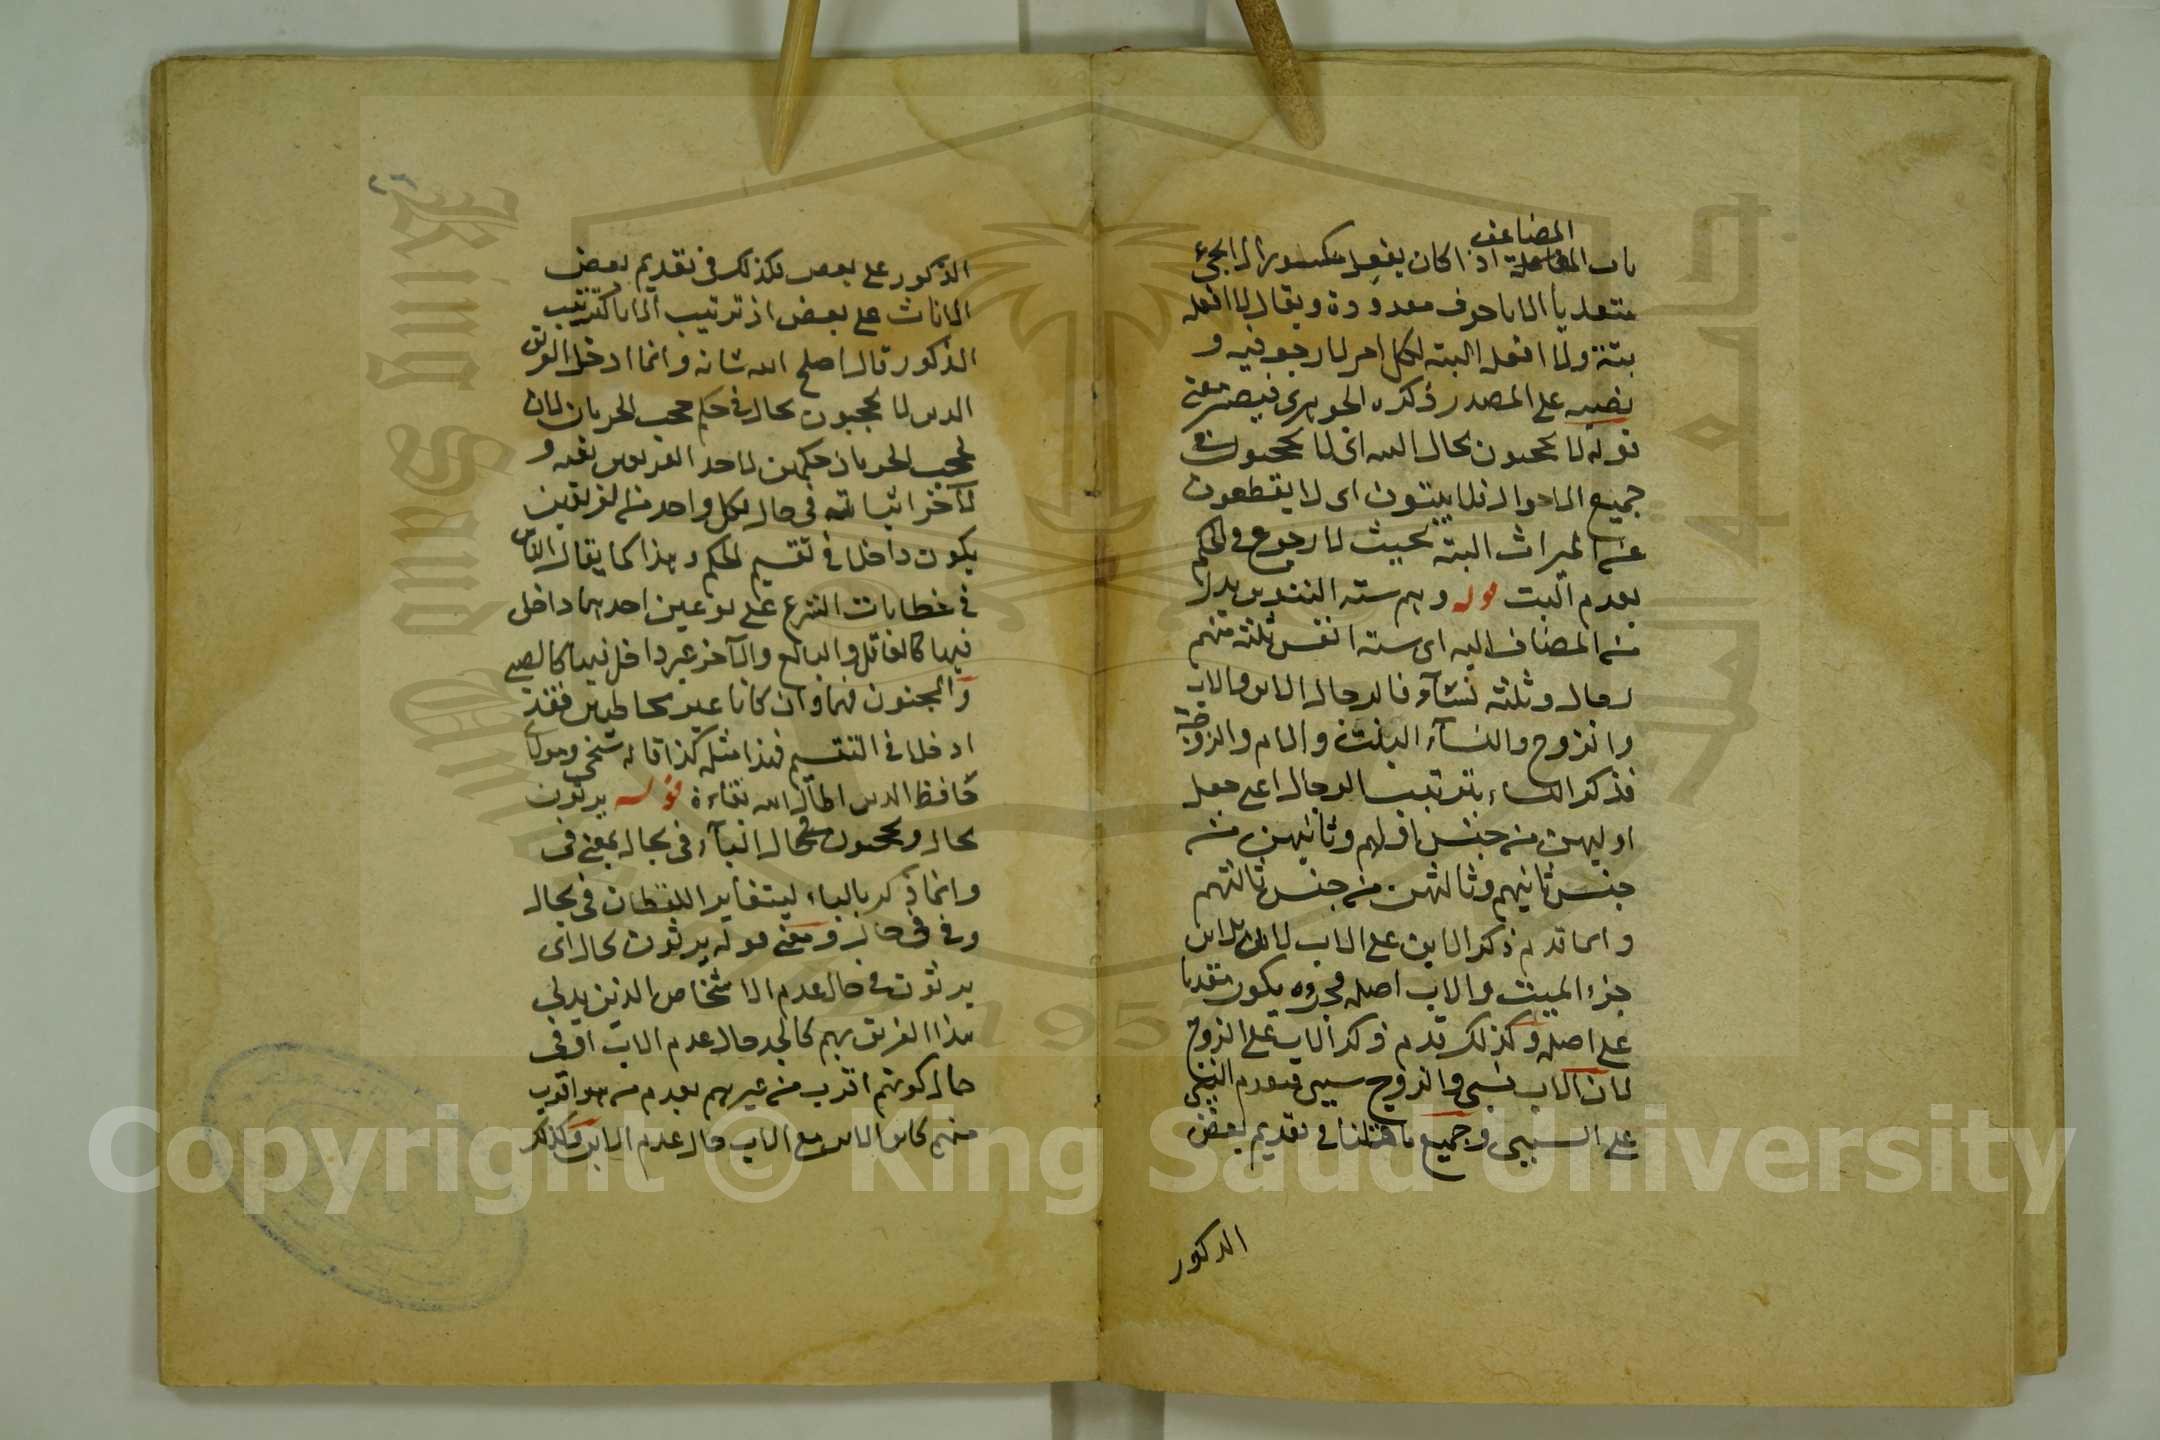 المضاعف
باب المفاعلة اذا كان يفعل مكسورا لا يجئ
متعديا الا باحرف معدودة ويقال لا افعله
بتة ولا افعله البتة لكل امر لا رجعة فيه و
نصبه على المصدر ذكره الجوهرى فيصير معنى
قوله لا يحجبون بحال البتة اى لا يحجبون فى
جميع الاحوال فلا يبتون اى لا يقطعون
عن الميراث البتة بحيث لا رجوع فى الحكم
بعدم البت قوله وهم ستة التنوين بدل
من المضاف اليه اى ستة انفس ثلثة منهم
رجال وثلثة نسآء فالرجال الابن والاب
والزوج والنسآء البنت والام والزوجة
فذكر النساء بترتيب الرجال اعنى جعل
اوليهن من جنس اولهم وثانيهن من
جنس ثانيهم وثالثهن من جنس ثالثهم
وانما قدم ذكر الابن على الاب لان الابن
جزء الميت والاب اصله فجزؤه يكون مقدما
على اصله وكذلك قدم ذكر الاب على الزوج
لان الاب نسبى والزوج سببى فيقدم النسبى
على السببى وجميع ما قلنا فى تقديم بعض
الذكور
الذكور على بعض فكذلك فى تقديم بعض
الاناث على بعض اذ ترتيب الاناث كترتيب
الذكور قال اصلح الله شانه وانما ادخل الفريق
الذين لا يحجبون بحال فى حكم حجب الحرمان لان
لحجب الحرمان حكمين لاحد الفريقين نفيه و
لآخر اثباته فى حال فكل واحد من الفريقين
يكون داخلا فى تقسيم الحكم وهذا كما يقال الناس
فى خطابات الشرع على نوعين احدهما داخل
فيها كالعاقل والبالغ والآخر غير داخل فيها كالصبى
والمجنون فهما وان كانا غير مخاطبين فقد
ادخلا فى التقسيم فهذا مثله كذا قاله شيخى ومولانا
حافظ الدين اطال الله بقاءه قوله يرثون
بحال ويحجبون بحال البآء فى بحال بمعنى فى
وانما ذكر بالباء ليتغاير اللفظان فى بحال
وفى فى حال ومعنى قوله يرثون بحال اى
يرثون فى حال عدم الاشخاص الذين يدلى
هذا الفريق بهم كالجد حال عدم الاب او فى
حال كونهم اقرب من غيرهم بعدم من هو اقرب
منهم كابن الابن مع الاب حال عدم الابن وكذلك
Copyright © King Saud University
King Saud University
1957